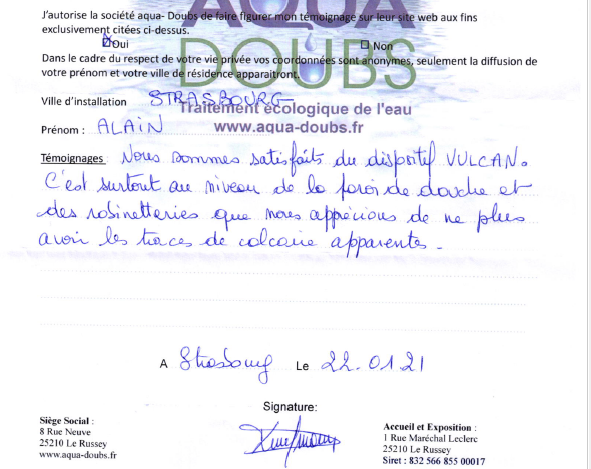 AQUA
DOUBS
J'autorise la société aqua- Doubs de faire figurer mon témoignage sur leur site web aux fins
exclusivement citées ci-dessus.
☒Oui ☐ Non
Dans le cadre du respect de votre vie privée vos coordonnées sont anonymes, seulement la diffusion de
votre prénom et votre ville de résidence apparaitront.
Ville d'installation STRASBOURG
Traitement écologique de l'eau
Prénom : ALAIN
www.aqua-doubs.fr
Témoignages : Nous sommes satisfaits du dispositif VULCAN.
C'est surtout au niveau de la paroi de douche et
des robinetteries que nous apprécions de ne plus
avoir les traces de calcaire apparentes.
A Strasbourg Le 22.01 21
Signature:
Siège Social :
8 Rue Neuve
25210 Le Russey
www.aqua-doubs.fr
Accueil et Exposition :
1 Rue Maréchal Leclerc
25210 Le Russey
Siret : 832 566 855 00017